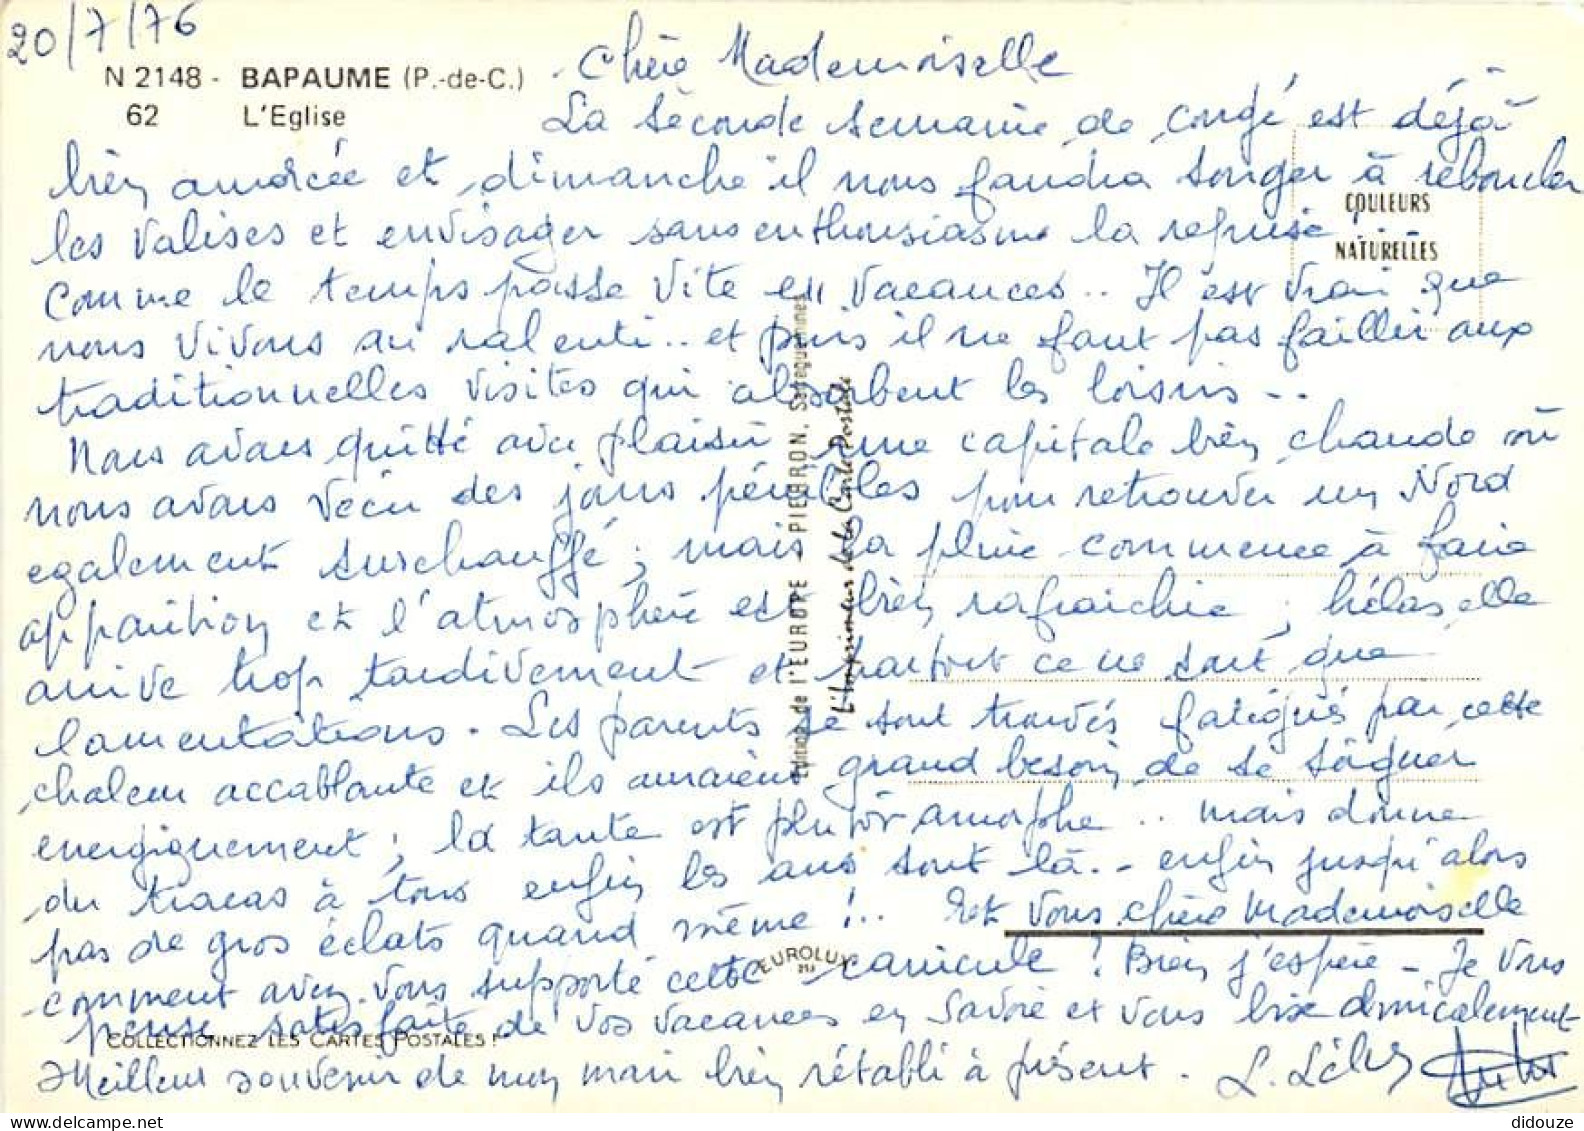 20/7/76
N 2148 - BAPAUME (P.-de-C.)
62 L'Eglise
Chère Mademoiselle
La seconde semaine de congé est déjà
bien amorcée et dimanche il nous faudra songer à reboucler
les valises et envisager sans enthousiasme la reprise !
Comme le temps passe vite en vacances.. Il est vrai que
nous vivons au ralenti.. et puis il ne faut pas faillir aux
traditionnelles visites qui absorbent les loisirs ..
Nous avons quitté avec plaisir une capitale bien chaude où
nous avons vécu des jours pénibles pour retrouver un Nord
egalement surchauffé ; mais la pluie commence à faire
apparition et l'atmosphère est bien rafraichie ; hélas elle
arrive trop tardivement et partout ce ne sont que
lamentations. Les parents se sont trouvés fatigués par cette
chaleur accablante et ils auraient grand besoin de se soigner
energiquement ; la tante est plutôt amorphe .. mais donne
du tracas à tous enfin les ans sont là .. enfin jusqu'alors
pas de gros éclats quand même !.. Et vous chère Mademoiselle
comment avez-vous supporté cette canicule ? Bien j'espère - Je vous
pense satisfaite de vos vacances en Savoie et vous bise amicalement
Meilleur souvenir de mon mari bien rétabli à présent. L.
COULEURS
NATURELLES
Edition de l'EUROPE - PIERRON, Sarreguemines
L'Imprimeur de la Carte Postale
EUROLUX
COLLECTIONNEZ LES CARTES POSTALES !
didouze